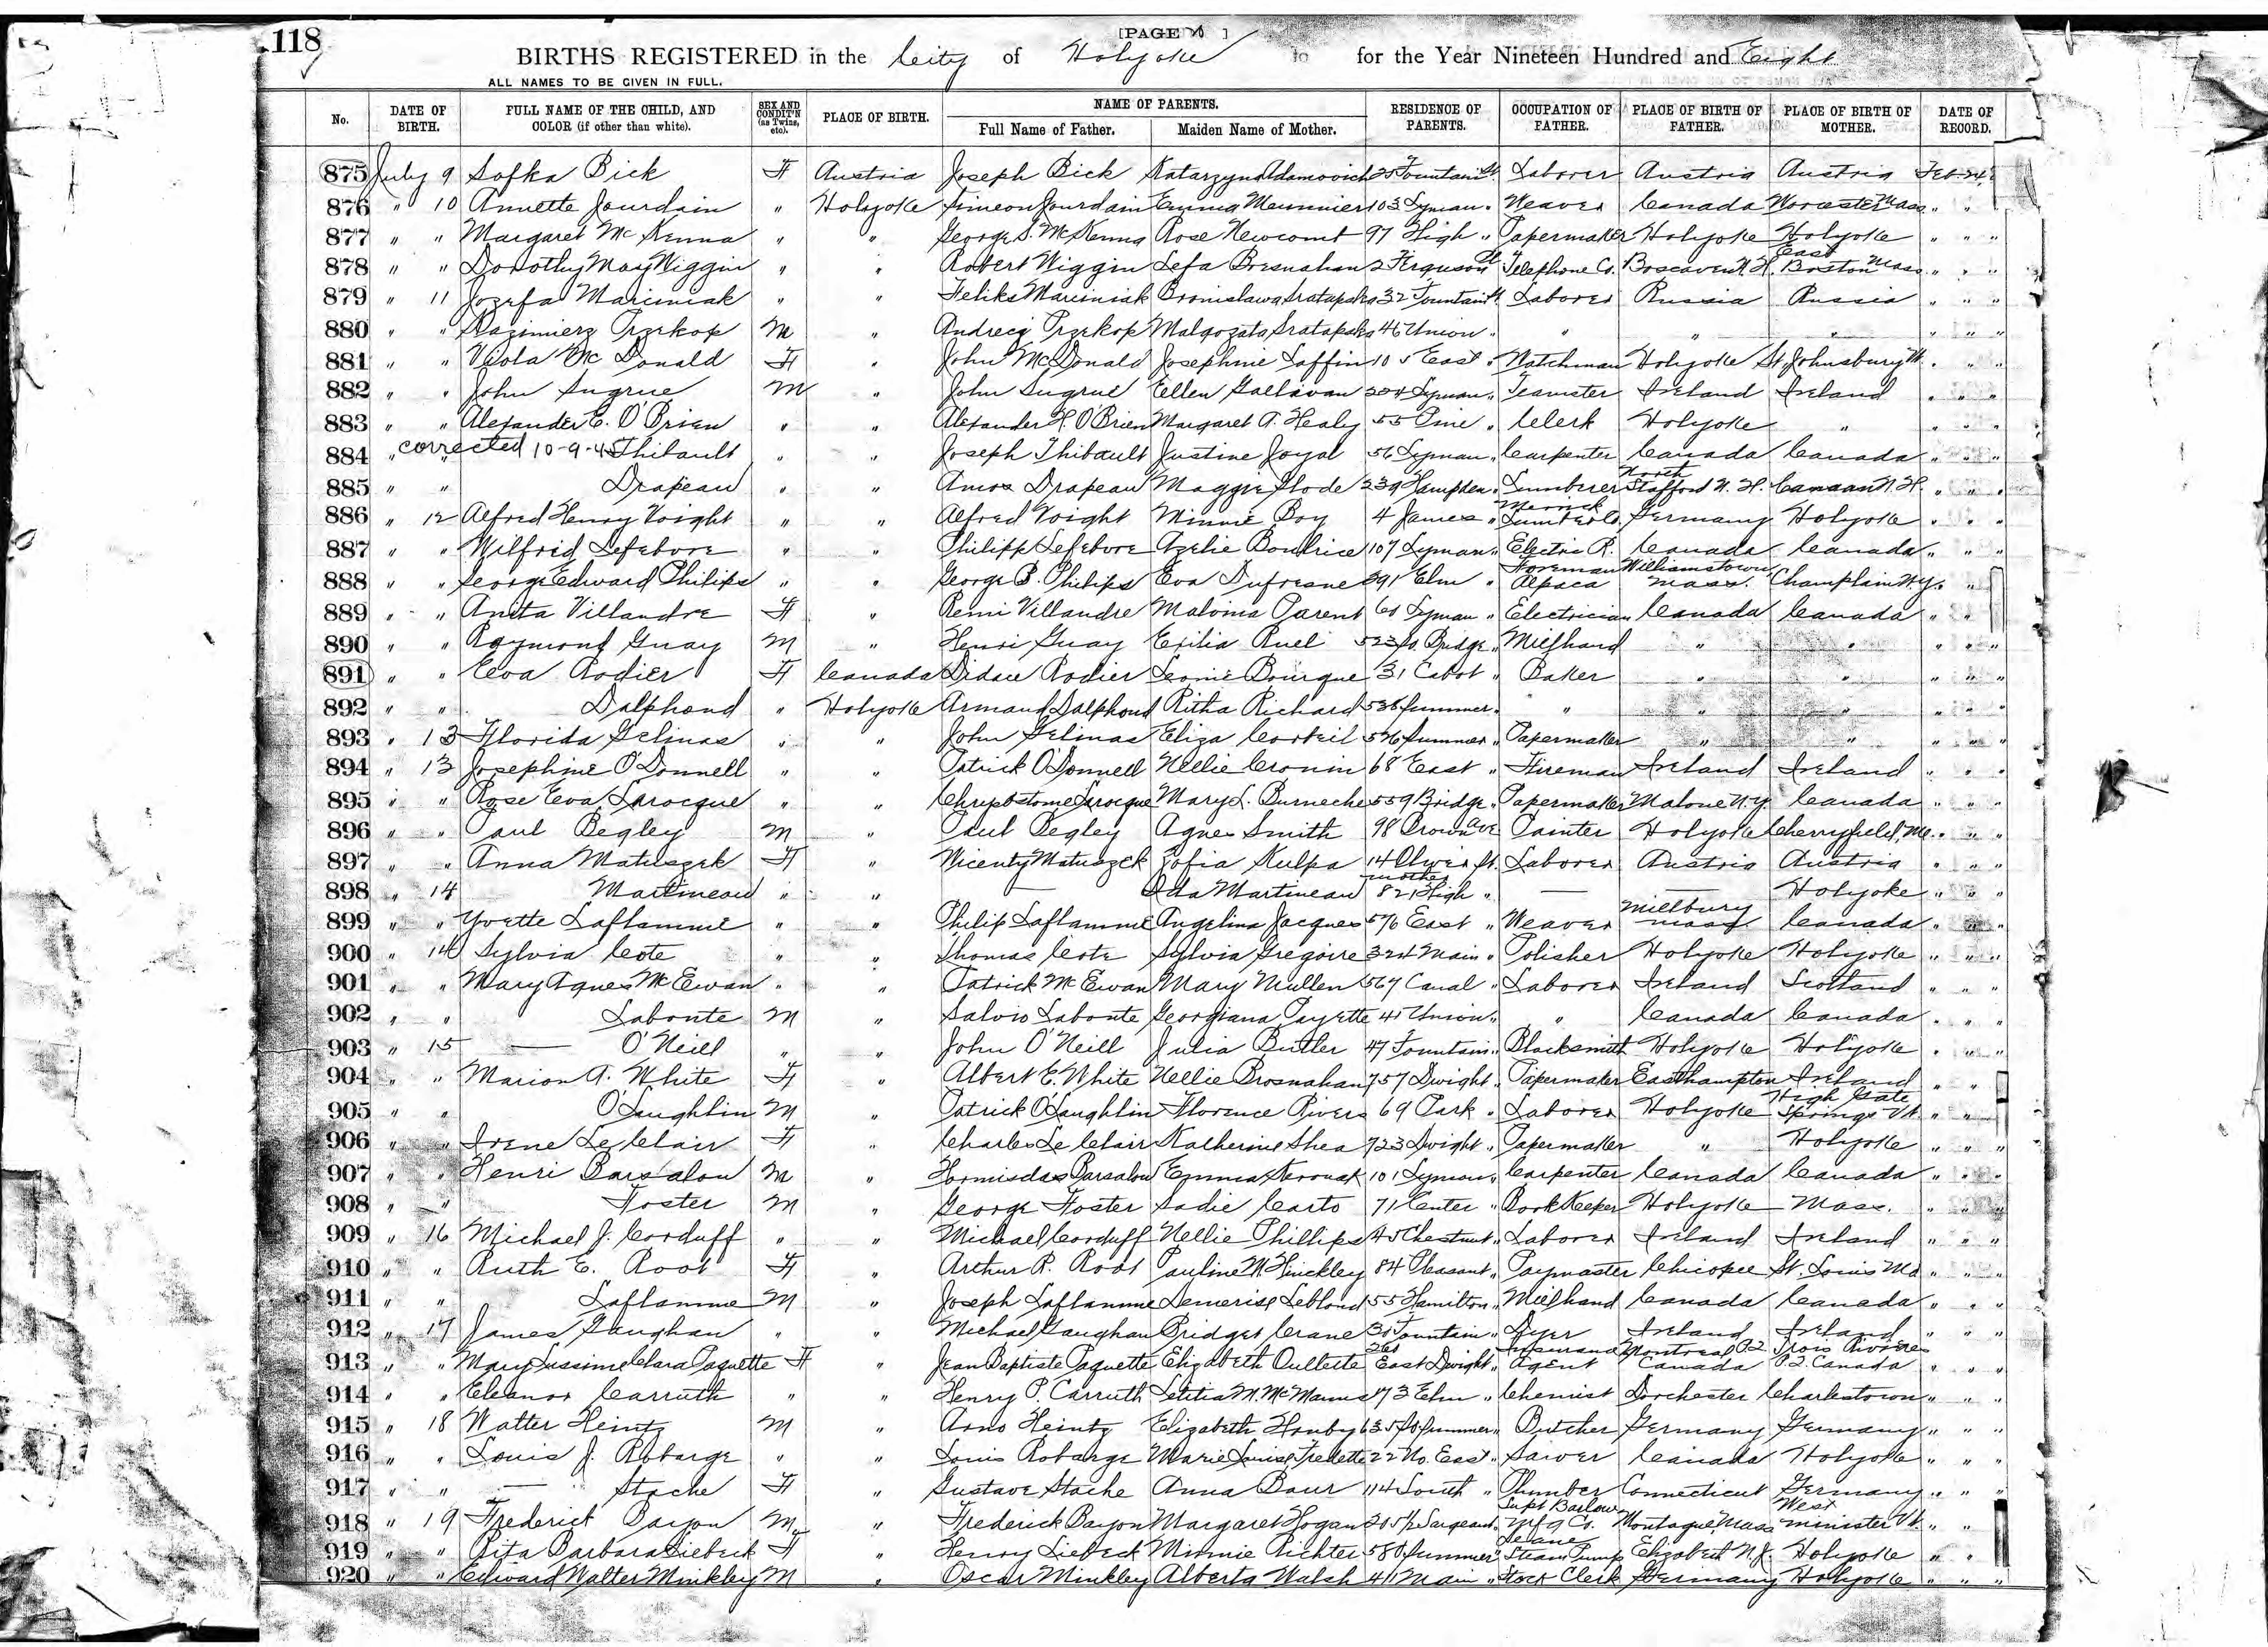 118
[PAGE ]
BIRTHS REGISTERED in the City of Holyoke for the Year Nineteen Hundred and Eight
ALL NAMES TO BE GIVEN IN FULL.
No. DATE OF BIRTH. FULL NAME OF THE CHILD, AND COLOR (if other than white). SEX AND CONDIT'N (as Twins, etc). PLACE OF BIRTH. NAME OF PARENTS. Full Name of Father. Maiden Name of Mother. RESIDENCE OF PARENTS. OCCUPATION OF FATHER. PLACE OF BIRTH OF FATHER. PLACE OF BIRTH OF MOTHER. DATE OF RECORD.
875 July 9 Sofka Bick F Austria Joseph Bick Katarzyna Adamovich 25 Fountain St. Laborer Austria Austria Feb. 24,
876 " 10 Annette Jourdain " Holyoke Simeon Jourdain Emma Meunnier 103 Lyman " Weaver Canada Worcester Mass " "
877 " " Margaret McKenna " " George S. McKenna Rose Newcomb 97 High " Papermaker Holyoke Holyoke " " "
878 " " Dorothy May Wiggin " " Robert Wiggin Lefa Bresnahan 2 Ferguson Pl Telephone Co. Boscawen N.H. East Boston Mass " " "
879 " 11 Jozefa Marciniak " " Feliks Marciniak Bronislawa Sratapska 32 Fountain St. Laborer Russia Russia " " "
880 " " Kazimierz Przekop M " Andrecj Przekop Malgozata Sratapska 46 Union " " " " " " "
881 " " Viola McDonald F " John McDonald Josephine Laffin 105 East " Watchman Holyoke St Johnsbury Vt. " " "
882 " " John Sugrue M " John Sugrue Ellen Gallivan 204 Lyman " Teamster Ireland Ireland " " "
883 " " Alexander E. O'Brien " " Alexander H. O'Brien Margaret A. Healy 55 Pine " Clerk Holyoke " " " "
884 " " corrected 10-9-45 Thibault " " Joseph Thibault Justine Joyal 56 Lyman " Carpenter Canada Canada " " "
885 " " Drapeau " " Amos Drapeau Maggie Plode 239 Hampden " Lumberer North Stafford N.H. Canaan N.H. " " "
886 " 12 Alfred Henry Voight " " Alfred Voight Minnie Boy 4 James " Merrick Lumber Co. Germany Holyoke " " "
887 " " Wilfrid Lefebvre " " Philipp Lefebvre Azelie Boudrice 107 Lyman " Electric R. Canada Canada " " "
888 " " George Edward Philips " " George B. Philips Eva Dufresne 291 Elm " Foreman Alpaca Williamstown Mass. Champlain N.Y. " "
889 " " Anita Villandre F " Remi Villandre Malvina Parent 60 Lyman " Electrician Canada Canada " "
890 " " Raymond Guay M " Henri Guay Exilia Ruel 523 So. Bridge " Millhand " " " " "
891 " " Eva Rodier F Canada Didace Rodier Leonie Bourque 31 Cabot " Baker " " " " "
892 " " Dalphond " Holyoke Armand Dalphond Ritha Richard 536 Summer " " " " " " "
893 " 13 Florida Gelinas " " John Gelinas Eliza Corbeil 526 Summer " Papermaker " " " " "
894 " 13 Josephine O'Donnell " " Patrick O'Donnell Nellie Cronin 68 East " Fireman Ireland Ireland " " "
895 " " Rose Eva Larocque " " Chrysostome Larocque Mary L. Burneche 559 Bridge " Papermaker Malone N.Y. Canada " " "
896 " " Paul Begley M " Paul Begley Agnes Smith 98 Brown Ave Painter Holyoke Cherryfield, Me. " " "
897 " " Anna Matuszek F " Wicenty Matuszek Zofia Kulpa 14 Oliver St. Laborer Austria Austria " " "
898 " 14 Martineau " " — Ida Martineau mother 821 High " — — Holyoke " " "
899 " " Yvette Laflamme " " Philip Laflamme Angelina Jacques 576 East " Weaver Millbury Mass Canada " " "
900 " 14 Sylvia Cote " " Thomas Cote Sylvia Gregoire 324 Main " Polisher Holyoke Holyoke " " "
901 " " Mary Agnes McEwan " " Patrick McEwan Mary Mullen 567 Canal " Laborer Ireland Scotland " " "
902 " " Labonte M " Salvio Labonte Georgiana Payette 41 Union " " Canada Canada " " "
903 " 15 — O'Neill " " John O'Neill Julia Butler 47 Fountain " Blacksmith Holyoke Holyoke " " "
904 " " Marion A. White F " Albert E. White Nellie Brosnahan 757 Dwight " Papermaker Easthampton Ireland " "
905 " " O'Laughlin M " Patrick O'Laughlin Florence Rivers 69 Park " Laborer Holyoke High Gate Springs Vt. " "
906 " " Irene LeClair F " Charles LeClair Katherine Shea 723 Dwight " Papermaker " Holyoke " " "
907 " " Henri Barsalou M " Hormisdas Barsalou Emma 101 Lyman " Carpenter Canada Canada " " "
908 " " Foster M " George Foster Sadie Carto 71 Center " Book Keeper Holyoke Mass. " " "
909 " 16 Michael J. Corduff " " Michael Corduff Nellie Phillips 45 Chestnut " Laborer Ireland Ireland " " "
910 " " Ruth E. Root F " Arthur R. Root Pauline N. Hinckley 84 Pleasant " Paymaster Chicopee St. Louis Mo " " "
911 " " Laflamme M " Joseph Laflamme Demerise Leblond 55 Hamilton " Millhand Canada Canada " " "
912 " 17 James Gaughan " " Michael Gaughan Bridget Crane 30 Fountain " Dyer Ireland Ireland " " "
913 " " Mary Lussime Clara Paquette F " Jean Baptiste Paquette Elizabeth Oullette 261 East Dwight " Insurance Agent Montreal P.Q. Canada Trois Rivieres P.Q. Canada " " "
914 " " Eleanor Carruth " " Henry P. Carruth Letitia M. McManus 173 Elm " Chemist Dorchester Charlestown " " "
915 " 18 Walter Heintz M " Arno Heintz Elizabeth Hanby 635 So. Summer " Butcher Germany Germany " " "
916 " " Louis J. Robarge " " Louis Robarge Marie Louise Fredette 22 No. East " Sawer Canada Holyoke " " "
917 " " — Stache F " Gustave Stache Anna Baur 114 South " Plumber Connecticut Germany " " "
918 " 19 Frederick Bayon M " Frederick Bayon Margaret Hogan 205 1/2 Sargeant " Supt Barlow Mfg Co. Montague, Mass West minister Vt. " "
919 " " Rita Barbara Liebeck F " Henry Liebeck Minnie Richter 580 Summer " Deane Steam Pump Elizabeth N.J. Holyoke " "
920 " " Edward Walter Minkley M " Oscar Minkley Alberta Walsh 411 Main " Stock Clerk Germany Holyoke " " "